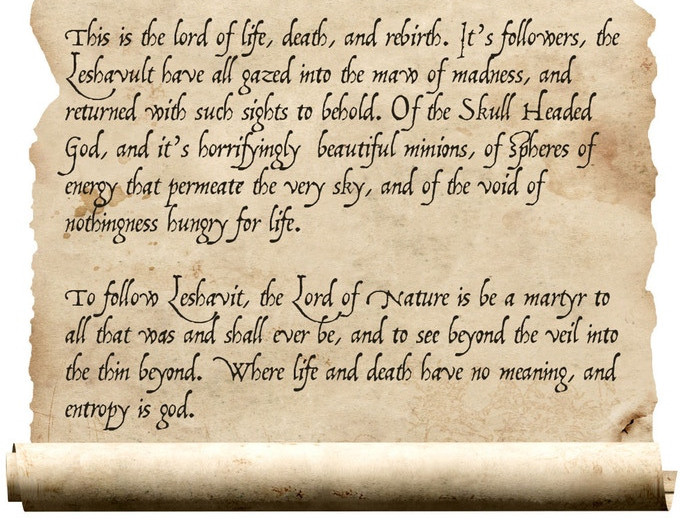 This is the lord of life, death, and rebirth. It's followers, the
Leshavult have all gazed into the maw of madness, and
returned with such sights to behold. Of the Skull Headed
God, and it's horrifyingly beautiful minions, of Spheres of
energy that permeate the very sky, and of the void of
nothingness hungry for life.
To follow Leshavit, the Lord of Nature is be a martyr to
all that was and shall ever be, and to see beyond the veil into
the thin beyond. Where life and death have no meaning, and
entropy is god.